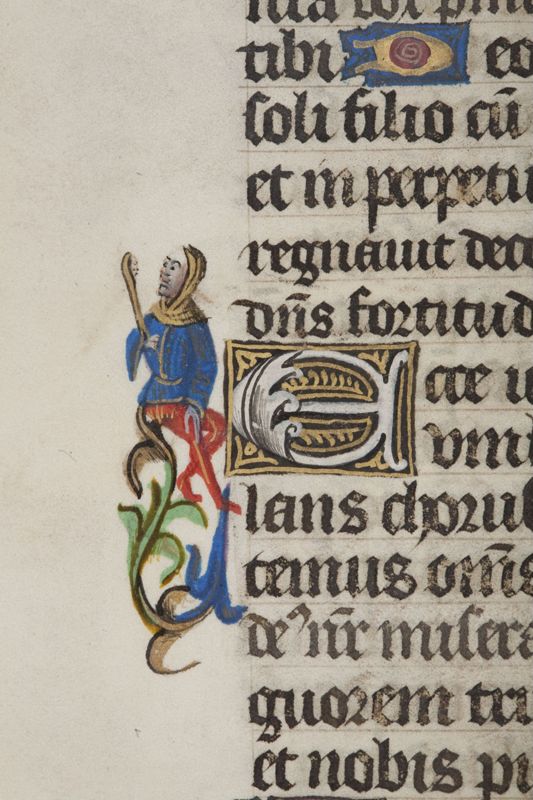 tibi eo
soli filio cū
et in perpetu
regnauit deco
dn̄s fortitud
Ecce u
lans chorus
temus om̄s
de nr̄ misere
guorem tri
et nobis pi